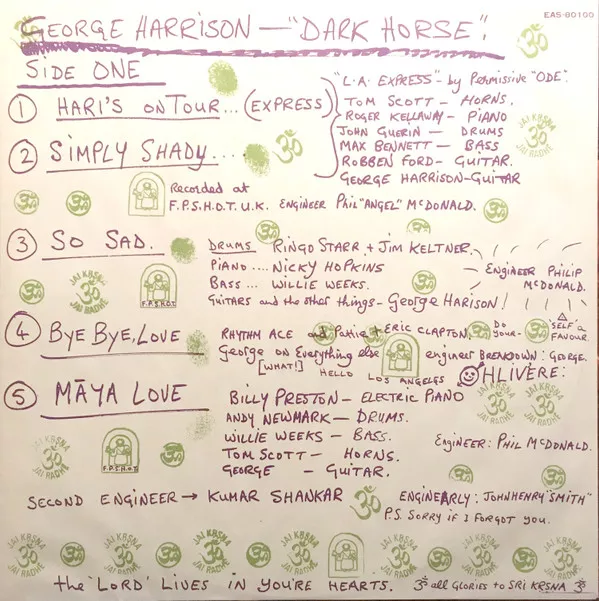 EAS-80100
GEORGE HARRISON — "DARK HORSE".
SIDE ONE
① HARI'S ON TOUR... (EXPRESS)
② SIMPLY SHADY....
"L.A. EXPRESS" - by Permissive "ODE".
TOM SCOTT - HORNS.
ROGER KELLAWAY - PIANO
JOHN GUERIN — DRUMS
MAX BENNETT - BASS
ROBBEN FORD - GUITAR.
GEORGE HARRISON - GUITAR
Recorded at
F.P.S.H.O.T. U.K. ENGINEER PHIL "ANGEL" McDONALD.
③ SO SAD.
DRUMS RINGO STARR + JIM KELTNER.
PIANO .... NICKY HOPKINS
BASS ... WILLIE WEEKS.
GUITARS and the other things - George Harison!
ENGINEER PHILIP
McDONALD.
F.P.S.H.O.T.
④ BYE BYE, LOVE
RHYTHM ACE and Pattie + ERIC CLAPTON.
DO YOUR- SELF A FAVOUR.
George on Everything else engineer BREAKDOWN: GEORGE.
[WHAT!] HELLO LOS ANGELES
OHLIVERE:
⑤ MĀYA LOVE
BILLY PRESTON - ELECTRIC PIANO
ANDY NEWMARK — DRUMS.
WILLIE WEEKS - BASS.
TOM SCOTT - HORNS.
GEORGE - GUITAR.
ENGINEER: PHIL McDONALD.
F.P.S.H.O.T.
SECOND ENGINEER → KUMAR SHANKAR
ENGINEARLY: JOHNHENRY "SMITH"
P.S. SORRY IF I FORGOT YOU.
JAI KRSNA ॐ JAI RADHE
the 'LORD' LIVES IN YOU'RE HEARTS. ॐ all GLORIES to SRI KRSNA ॐ